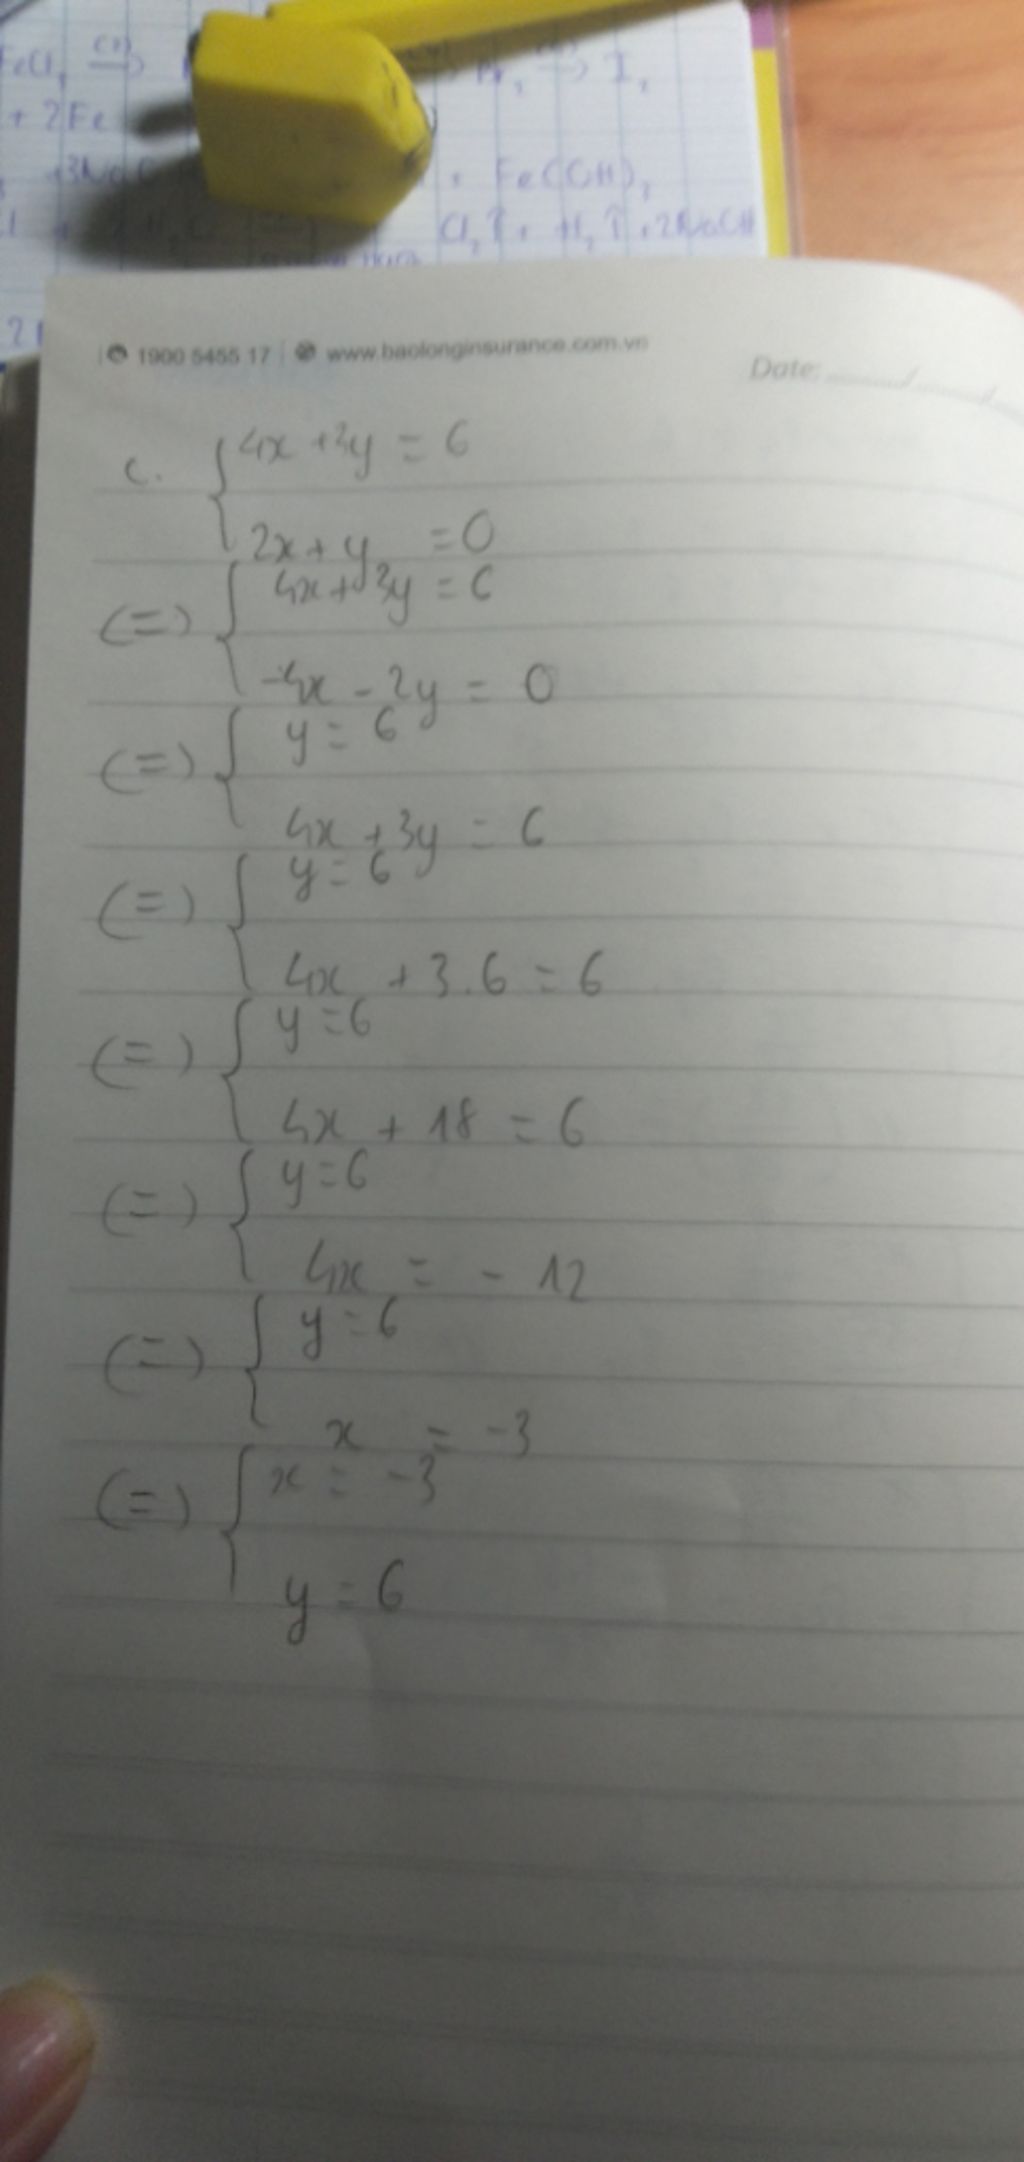 FeCl₃ (3)→ Br₂ → I₂
+ 2Fe
+3Na + Fe(OH)₃
Cl₂↑ + H₂↑ + 2NaOH
1900 5455 17 | www.baolonginsurance.com.vn
Date: ....../....../
c. { 4x + 3y = 6
2x + y = 0
(=) { 4x + 3y = 6
-4x - 2y = 0
(=) { y = 6
4x + 3y = 6
(=) { y = 6
4x + 3.6 = 6
(=) { y = 6
4x + 18 = 6
(=) { y = 6
4x = - 12
(=) { y = 6
x = -3
(=) { x = -3
y = 6